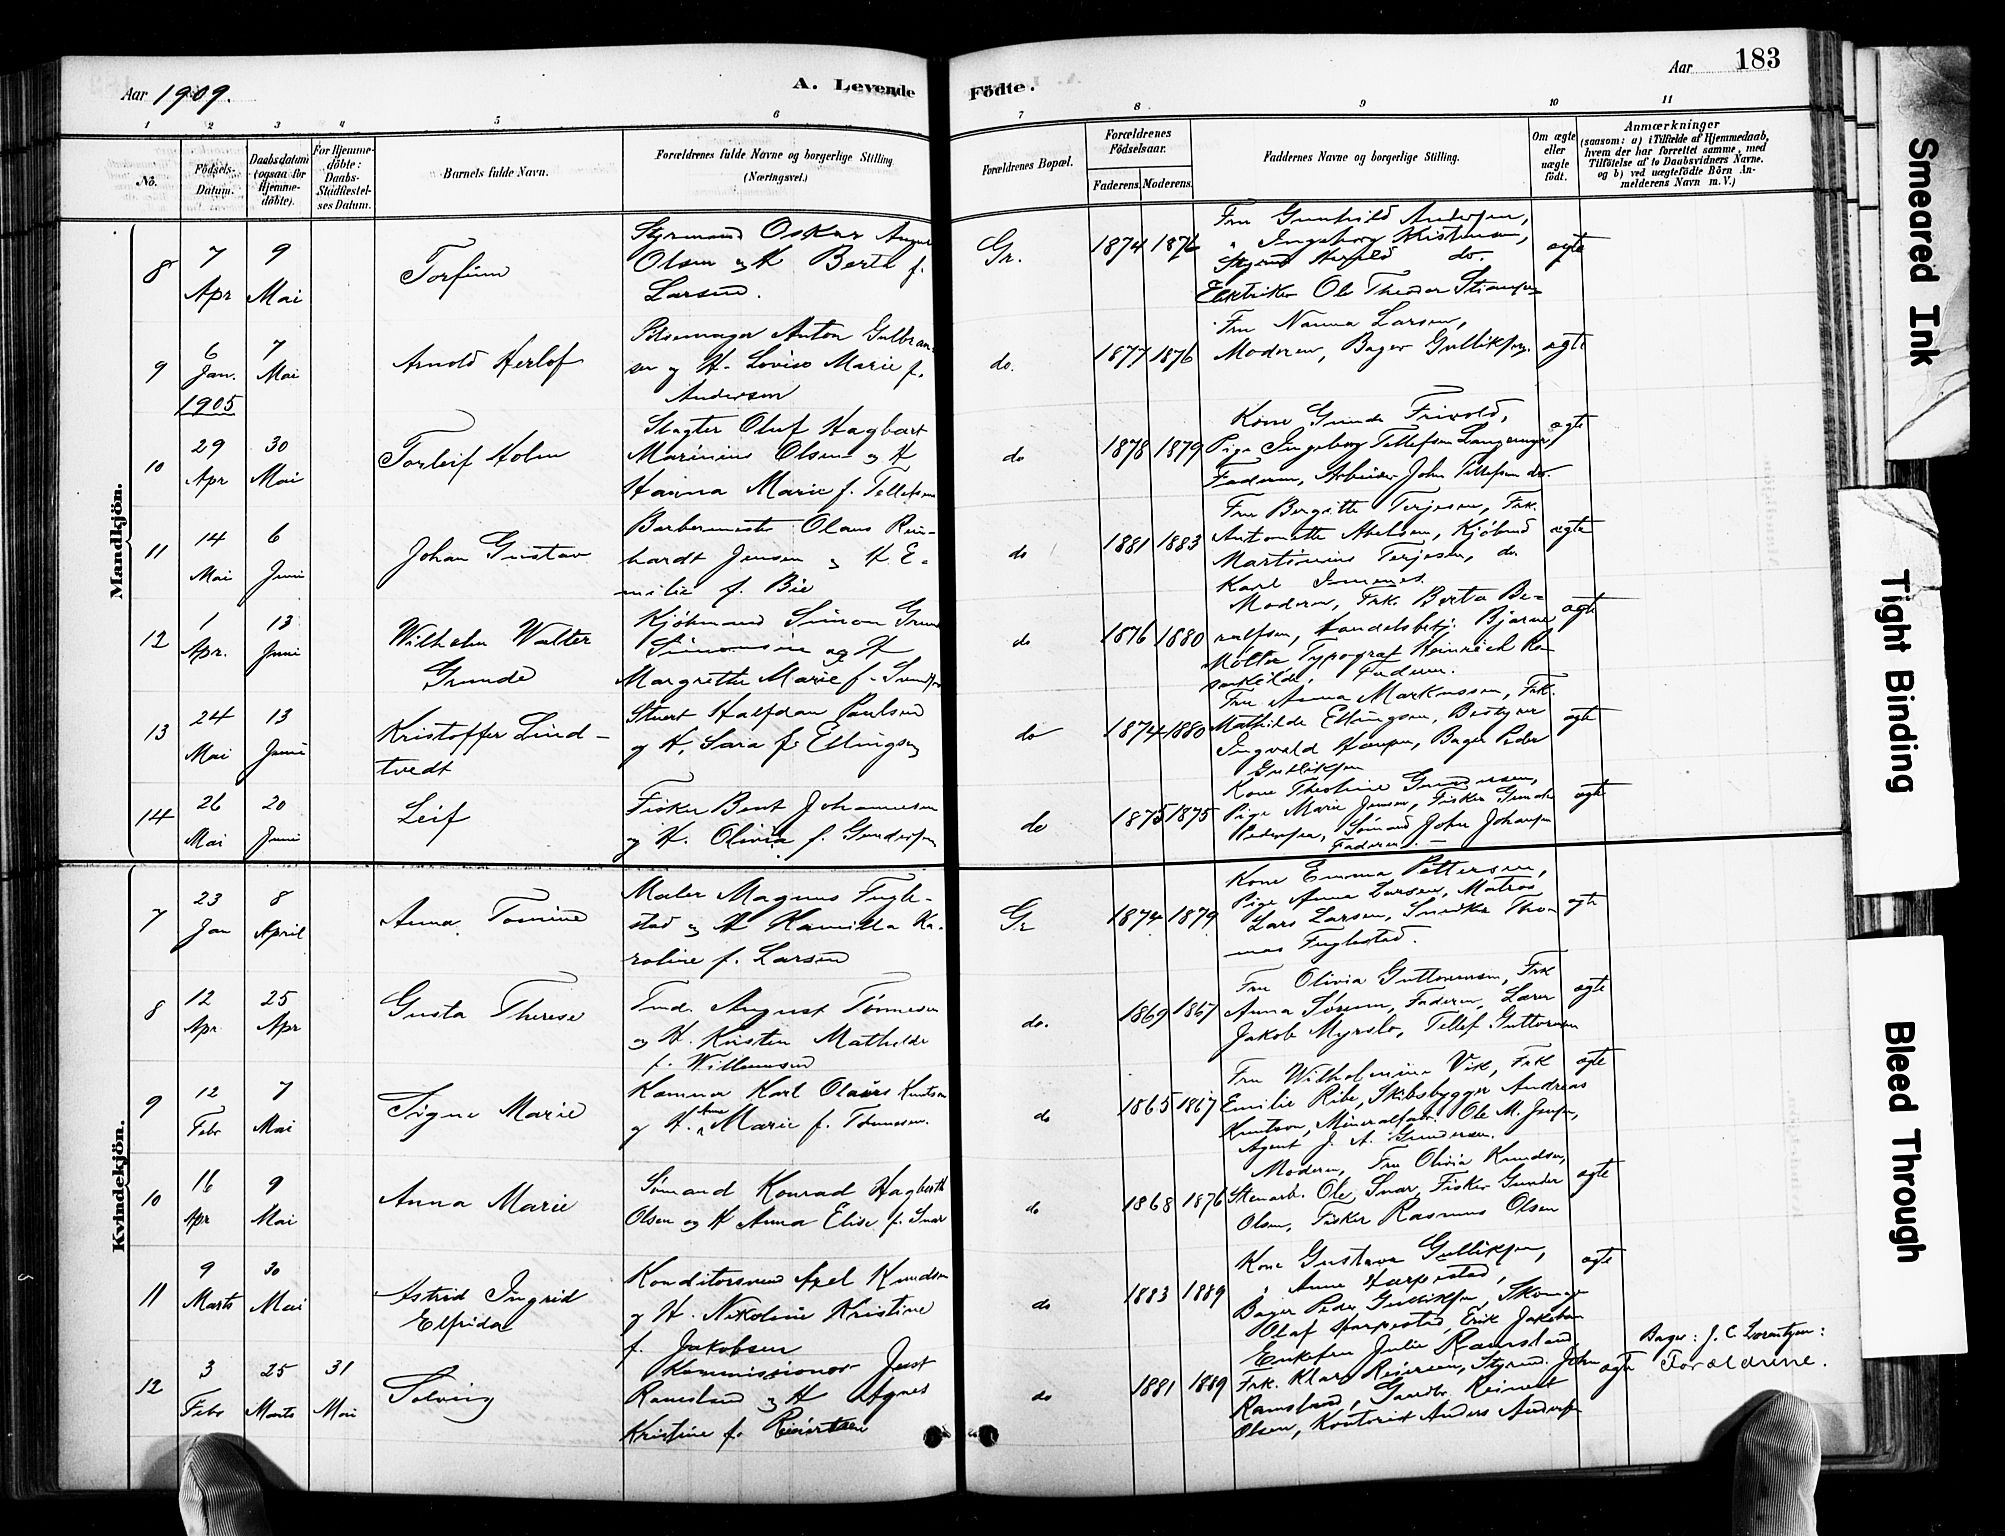 Aar 1909.
A. Levende Födte.
Aar 183
1 2 3 4 5 6 7 8 9 10 11
No.
Födsels-Datum.
Daabsdatum (ogsaa for Hjemme-döbte).
For Hjemme-döbte: Daabs-Stadfæstel-ses Datum.
Barnets fulde Navn.
Forældrenes fulde Navne og borgerlige Stilling. (Næringsvei.)
Forældrenes Bopæl.
Forældrenes Födselsaar.
Faderens. Moderens.
Faddernes Navne og borgerlige Stilling.
Om ægte eller uægte födt.
Anmærkninger
(saasom: a) i Tilfælde af Hjemmedaab, hvem der har forrettet samme, med Tilföielse af to Daabsvidners Navne. og b) ved uægtefödte Börn An-melderens Navn m. V.)
Mandkjön.
8
7 Apr
9 Mai
Torfinn
Styrmand Oskar August
Olsen og H Berte f.
Larsen.
Gr.
1874 1876
Fru Gunhild Andersen,
" Ingeborg Kristensen,
do.
Elektriker Ole Theodor
ægte
9
6 Jan. 1905
7 Mai
Arnold Herlof
Pölsemager Anton Gulbran-
sen og H. Lovise Marie f.
Andersen
do.
1877 1876
Fru Nanna Larsen,
Moderen, Bager Gulliksen.
ægte
10
29 Apr
30 Mai
Torleif Holm
Slagter Oluf Hagbart
Marinius Olsen og H
Hanna Marie f. Tellefsen
do
1878 1879
Kone Gunda Frivold,
Pige Ingeborg Tellefsen Langemyr
Faderen, Arbeider John Tellefsen do.
ægte
11
14 Mai
6 Juni
Johan Gustav
Barbermester Olaus Rein-
hardt Jensen og H E-
milie f. Bie
do
1881 1883
Fru Bergitte Terjesen, Frk.
Antonette Abelsen, Kjöbmd
Martinius Terjesen, do
Karl
ægte
12
1 Apr.
13 Juni
Wilhelm Walter
Grunde
Kjöbmand Simon
Simonsen og H
Margrethe Marie f.
do
1876 1880
Moderen, Frk. Berta Be-
rulfsen, Handelsbetj. Bjarne
Möller Typograf Heinrich Ro-
senkilde, Faderen.
ægte
13
24 Mai
13 Juni
Kristoffer Lind-
tvedt
Stuert Halfdan Paulsen
og H. Sara f. Ellingsen
do
1874 1880
Fru Anna Markussen, Frk.
Mathilde Ellingsen, Bestyrer
Ingvald Hansen, Bager Peder
Gulliksen
ægte
14
26 Mai
20 Juni
Leif
Fisker Bent Johannesen
og H. Olivia f. Gundersen
do
1875 1875
Kone Theoline Gundersen,
Pige Marie Jensen, Fisker Gunder
Pedersen, Sömand John Johansen
Faderen.
ægte
Kvindekjön.
7
23 Jan
8 April
Anna Tomine
Maler Magnus Fugle-
stad og H Kamilla Ka-
roline f. Larsen
Gr
1874 1879
Kone Emma Pettersen,
Pige Anna Larsen, Matros
Lars Larsen, Snedker Tho-
mas Fuglestad.
ægte
8
12 Apr
25 Apr
Gusta Therese
August Tönnesen
og H. Kirsten Mathilde
f. Willumsen
do.
1869 1867
Fru Olivia Guttormsen, Frk
Anna Sörensen, Faderen, Lærer
Jakob Myrslo, Tellef Guttormsen
ægte
9
12 Febr
7 Mai
Signe Marie
Karl Olaus Knutson
og H. Ane Marie f. Tönnesen.
do
1865 1867
Fru Wilhelmine Vik, Frk
Emilie Ribe, Skibsbygger Andreas
Knutson, Mineralfabr. Ole M. Jensen,
Agent J. A. Gundersen.
ægte
10
16 Apr
9 Mai
Anna Marie
Sömand Konrad Hagbarth
Olsen og H Anna Elise f. Snar
do
1868 1876
Moderen, Fru Olivia Knudsen,
Stenarb. Ole Snar, Fisker Gunder
Olsen, Fisker Rasmus Olsen
ægte
11
9 Marts
30 Mai
Astrid Ingrid
Elfrida
Konditorsvend Axel Knudsen
og H. Nikoline Kristine
f. Jakobsen
do
1883 1889
Kone Gustava Gulliksen,
" Anne Harpestad,
Bager Peder Gulliksen, Skomager
Olaf Harpestad, Erik Jakobsen
ægte
12
3 Febr
25 Marts
31 Mai
Solveig
Kommissionær Just
Ramsland og H Agnes
Kristine f. Reiersen
do
1881 1889
Enkefru Julie Ramsland
Frk. Klara Reiersen, Styrmd. John
Ramsland, Gaardbr. Reinert
Olsen, Kontorist Anders Andersen
ægte
Bager: J. C. Lorentzen:
Forældrene.
Smeared Ink
Tight Binding
Bleed Through